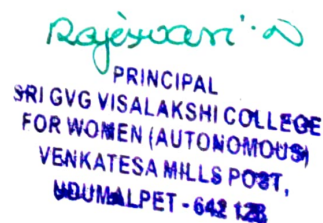 Rajeswari. N
PRINCIPAL
SRI GVG VISALAKSHI COLLEGE
FOR WOMEN (AUTONOMOUS)
VENKATESA MILLS POST,
UDUMALPET - 642 128